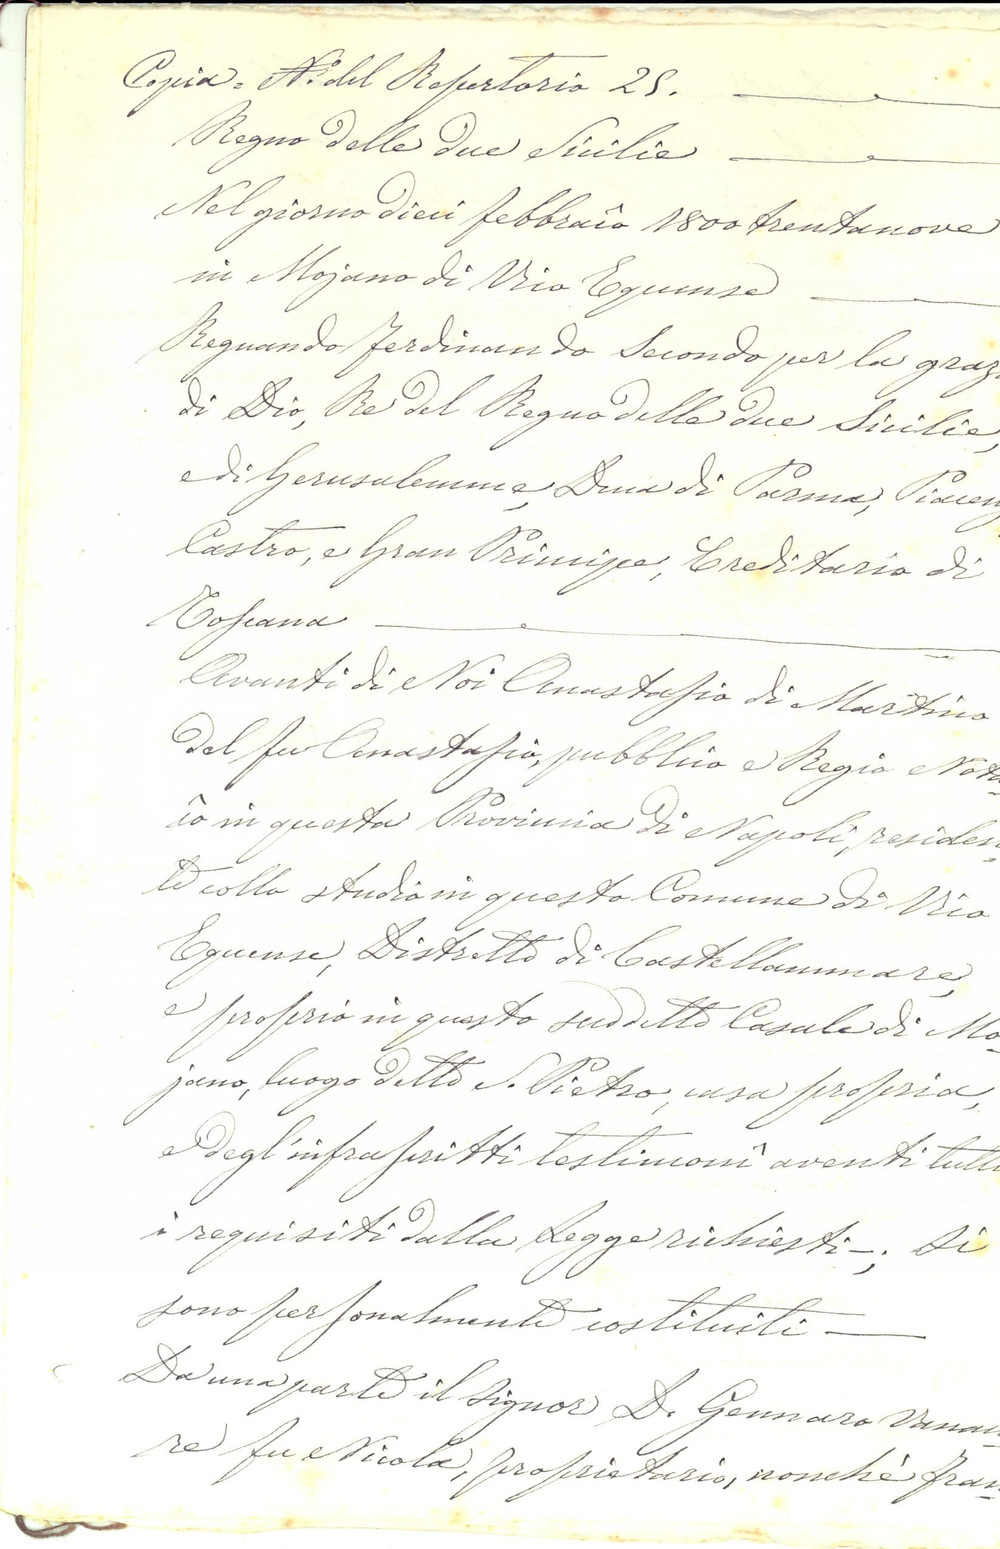 Copia = N.º del Repertorio 25.
Regno delle due Sicilie
Nel giorno dieci febbraio 1800 trentanove
in Mojano di Vico Equense
Regnando Ferdinando Secondo per la grazi
di Dio, Re del Regno delle due Sicilie,
e di Gerusalemme, Duca di Parma, Piacenz
Castro, e Gran Principe, Ereditario di
Toscana
Avanti di Noi Anastasio di Martino
del fu Anastasio, pubblico e Regio Nota-
io in questa Provincia di Napoli, residen-
te collo studio in questo Comune di Vico
Equense, Distretto di Castellammare,
e proprio in questo suddetto Casale di Mo-
jano, luogo detto S. Pietro, casa propria,
e degl'infrascritti testimonî aventi tutti
i requisiti dalla Legge richiesti—; Si
sono personalmente costituiti —
Da una parte il Signor D. Gennaro Vanac-
re fu Nicola, proprietario, nonchè Fran-